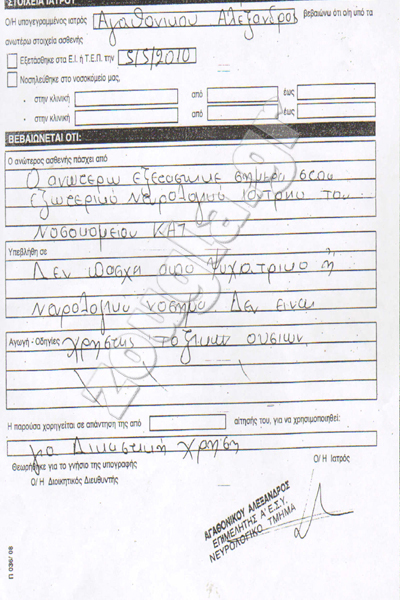 ΣΤΟΙΧΕΙΑ ΙΑΤΡΟΥ
Ο/Η υπογεγραμμένος ιατρός Αγαθονικου Αλεξανδρος βεβαιώνω ότι ο/η υπό τα
ανωτέρω στοιχεία ασθενής
Εξετάσθηκε στα Ε.Ι. ή Τ.Ε.Π. την 5/5/2010
Νοσηλεύθηκε στο νοσοκομείο μας,
- στην κλινική από έως
- στην κλινική από έως
ΒΕΒΑΙΩΝΕΤΑΙ ΟΤΙ:
Ο ανώτερος ασθενής πάσχει από
Ο ανωτερω εξετασθηκε σημερα στο
Εξωτερικο Νευρολογικο Ιατρειο του
Νοσοκομειου ΚΑΤ
Υπεβλήθη σε
Δεν πασχει απο Ψυχιατρικο ή
Νευρολογικο νοσημα. Δεν ειναι
Αγωγή - Οδηγίες χρηστης τοξικων ουσιων
Η παρούσα χορηγείται σε απάντηση της από αίτησής του, για να χρησιμοποιηθεί:
για Δικαστικη χρηση
Θεωρήθηκε για το γνήσιο της υπογραφής Ο/Η Ιατρός
Ο/Η Διοικητικός Διευθυντής
ΑΓΑΘΟΝΙΚΟΥ ΑΛΕΞΑΝΔΡΟΣ
ΕΠΙΜΕΛΗΤΗΣ Α' Ε.Σ.Υ.
ΝΕΥΡΟΛΟΓΙΚΟ ΤΜΗΜΑ
Π 036/ 08
zougla.gr